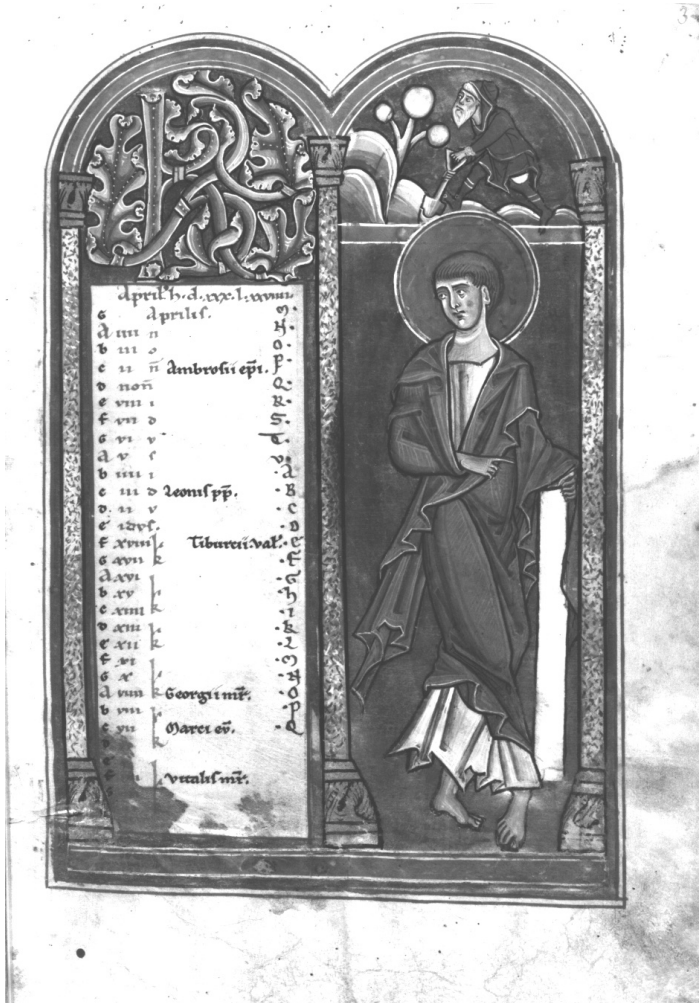 3
KL
Aprilˢ h. d. xxx. l. xxviiii.
G Aprilis. M
A iiii n N
b iii o O
c ii n̄ Ambrosii ep̄i. P
d non̄ Q
e viii i R
f vii d S
g vi v T
A v s V
b iiii i A
c iii d Leonis pp̄. B
d ii v C
e idvs. D
f xviii k Tiburcii. val. E
g xvii k F
A xvi G
b xv k h
c xiiii k i
d xiii K
e xii k L
f xi M
g x N
A viiii k Georgii mr̄. O
b viii P
c vii Marci ev̄. Q
k Vitalis mr̄.